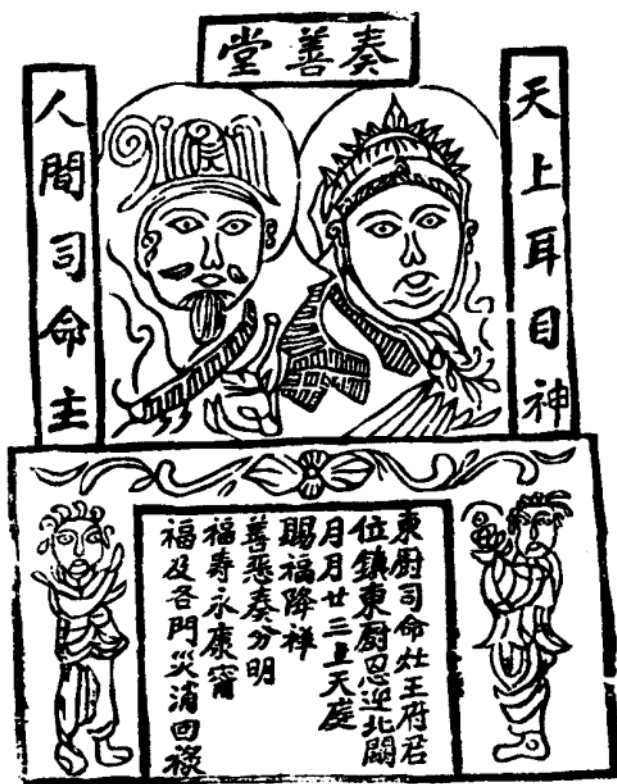 奏善堂
天上耳目神
人間司命主
東厨司命灶王府君
位鎮東厨恩迎北闕
月月廿三上天庭
賜福降祥
善惡奏分明
福寿永康甯
福及各門災消回祿